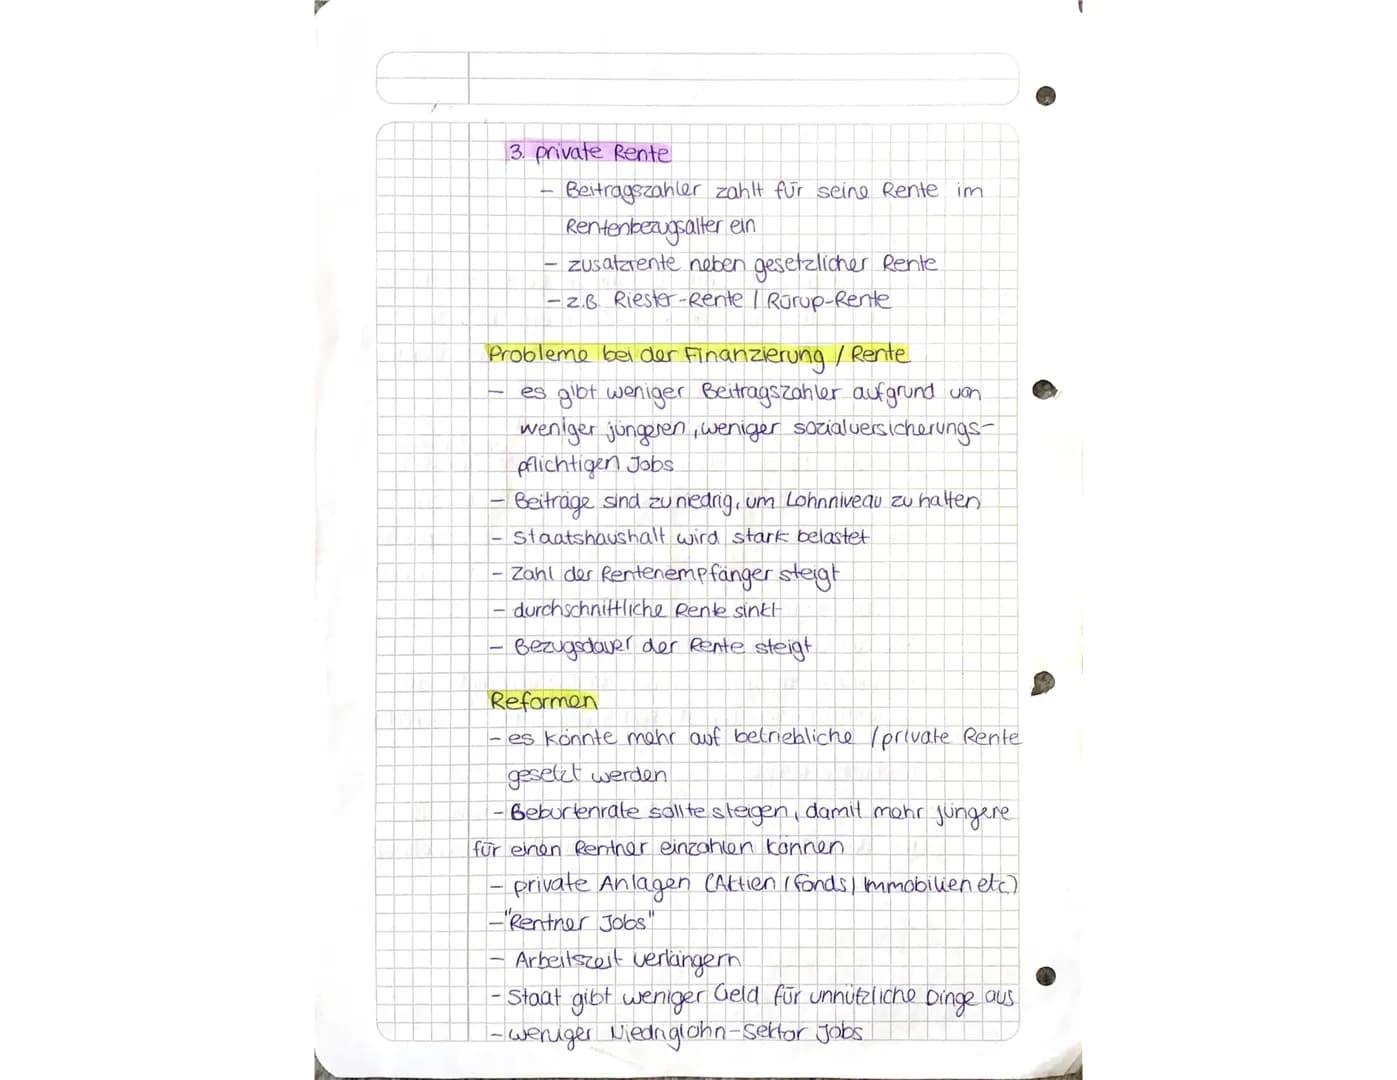 3. private Rente
- Beitragszahler zahlt für seine Rente im
Rentenbezugsalter ein
- zusatzrente neben gesetzlicher Rente
- z.B. Riester-Rente / Rürup-Rente
Probleme bei der Finanzierung / Rente
- es gibt weniger Beitragszahler aufgrund von
weniger jüngeren, weniger sozialversicherungs-
pflichtigen Jobs
- Beiträge sind zu niedrig, um Lohnniveau zu halten
- Staatshaushalt wird stark belastet
- Zahl der Rentenempfänger steigt
- durchschnittliche Rente sinkt
- Bezugsdauer der Rente steigt
Reformen
- es könnte mehr auf betriebliche / private Rente
gesetzt werden
- Beburtenrate sollte steigen, damit mehr jüngere
für einen Rentner einzahlen können
- private Anlagen (Aktien / Fonds / Immobilien etc)
- "Rentner Jobs"
- Arbeitszeit verlängern
- Staat gibt weniger Geld für unnützliche Dinge aus
- weniger Niedriglohn-Sektor Jobs